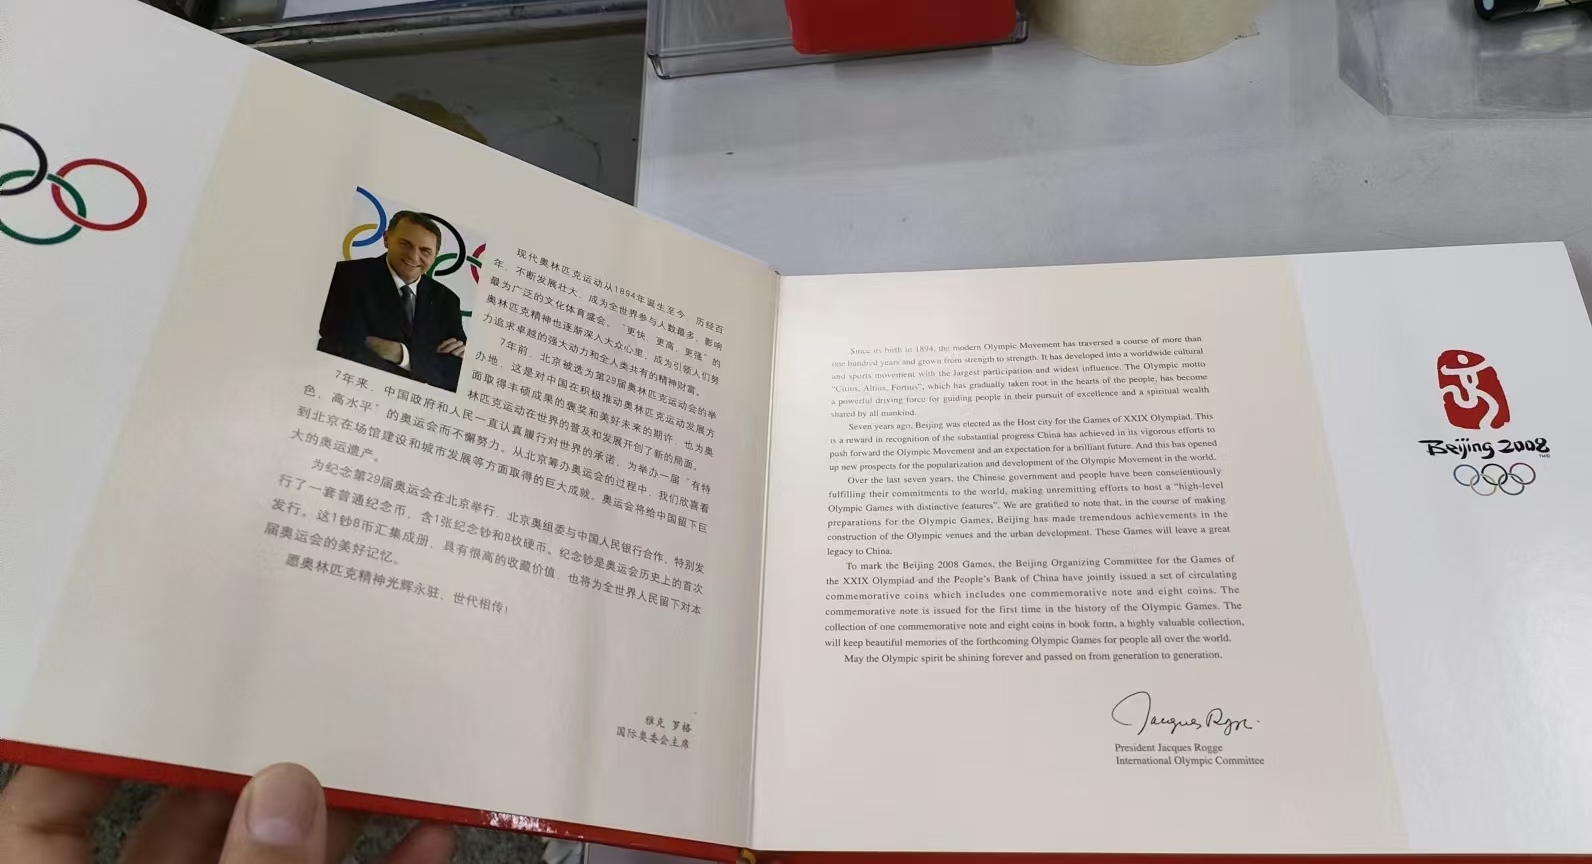 现代奥林匹克运动从1894年诞生至今，历经百
年，不断发展壮大，成为全世界参与人数最多、影响
最为广泛的文化体育盛会、“更快、更高、更强”的
奥林匹克精神也逐渐深入大众心里，成为引领人们努
力追求卓越的强大动力和全人类共有的精神财富。
7年前，北京被选为第29届奥林匹克运动会的举
办地，这是对中国在积极推动奥林匹克运动发展方
面取得丰硕成果的褒奖和美好未来的期许，也为奥
林匹克运动在世界的普及和发展开创了新的局面。
7年来，中国政府和人民一直认真履行对世界的承诺，为举办一届“有特
色、高水平”的奥运会而不懈努力。从北京筹办奥运会的过程中，我们欣喜看
到北京在场馆建设和城市发展等方面取得的巨大成就。奥运会将给中国留下巨
大的奥运遗产。
为纪念第29届奥运会在北京举行，北京奥组委与中国人民银行合作，特别发
行了一套普通纪念币，含1张纪念钞和8枚硬币。纪念钞是奥运会历史上的首次
发行。这1钞8币汇集成册，具有很高的收藏价值，也将为全世界人民留下对本
届奥运会的美好记忆。
愿奥林匹克精神光辉永驻、世代相传！
雅克 罗格
国际奥委会主席
Since its birth in 1894, the modern Olympic Movement has traversed a course of more than
one hundred years and grown from strength to strength. It has developed into a worldwide cultural
and sports movement with the largest participation and widest influence. The Olympic motto
"Citius, Altius, Fortius", which has gradually taken root in the hearts of the people, has become
a powerful driving force for guiding people in their pursuit of excellence and a spiritual wealth
shared by all mankind.
Seven years ago, Beijing was elected as the Host city for the Games of XXIX Olympiad. This
is a reward in recognition of the substantial progress China has achieved in its vigorous efforts to
push forward the Olympic Movement and an expectation for a brilliant future. And this has opened
up new prospects for the popularization and development of the Olympic Movement in the world.
Over the last seven years, the Chinese government and people have been conscientiously
fulfilling their commitments to the world, making unremitting efforts to host a "high-level
Olympic Games with distinctive features". We are gratified to note that, in the course of making
preparations for the Olympic Games, Beijing has made tremendous achievements in the
construction of the Olympic venues and the urban development. These Games will leave a great
legacy to China.
To mark the Beijing 2008 Games, the Beijing Organizing Committee for the Games of
the XXIX Olympiad and the People's Bank of China have jointly issued a set of circulating
commemorative coins which includes one commemorative note and eight coins. The
commemorative note is issued for the first time in the history of the Olympic Games. The
collection of one commemorative note and eight coins in book form, a highly valuable collection,
will keep beautiful memories of the forthcoming Olympic Games for people all over the world.
May the Olympic spirit be shining forever and passed on from generation to generation.
Jacques Rogge
President Jacques Rogge
International Olympic Committee
Beijing 2008
TM